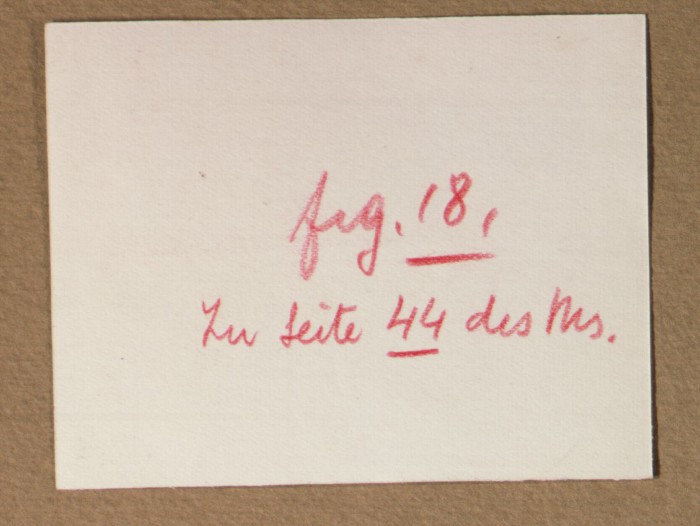 fig. 18,
Zu Seite 44 des Ms.